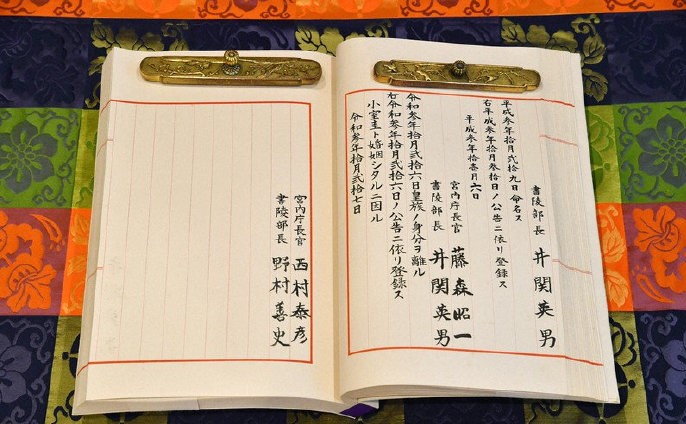 書陵部長 井関英男
平成参年拾月弐拾九日命名ス
右平成参年拾月参拾日ノ公告ニ依リ登録ス
平成参年拾壱月六日
宮内庁長官 藤森昭一
書陵部長 井関英男
令和参年拾月弐拾六日皇族ノ身分ヲ離ル
右令和参年拾月弐拾六日ノ公告ニ依リ登録ス
小室圭ト婚姻シタルニ因ル
令和参年拾月弐拾七日
宮内庁長官 西村泰彦
書陵部長 野村善史